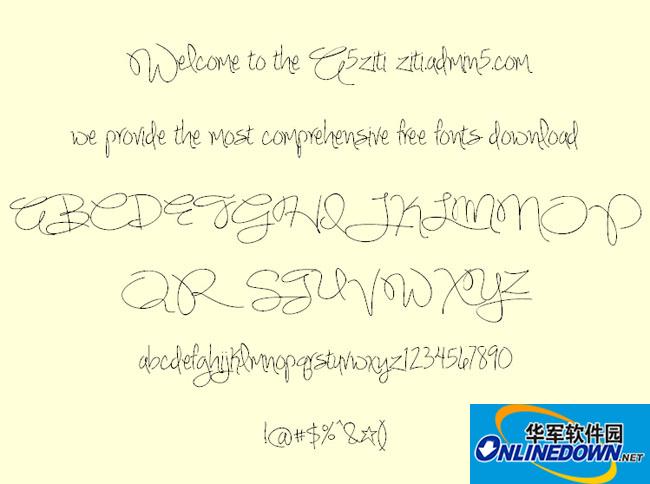 Welcome to the A5ziti ziti.admin5.com
we provide the most comprehensive free fonts download
ABCDEFGHIJKLMNOP
QRSTUVWXYZ
abcdefghijklmnopqrstuvwxyz1234567890
!@#$%^&☆()
华军软件园
ONLINEDOWN.NET